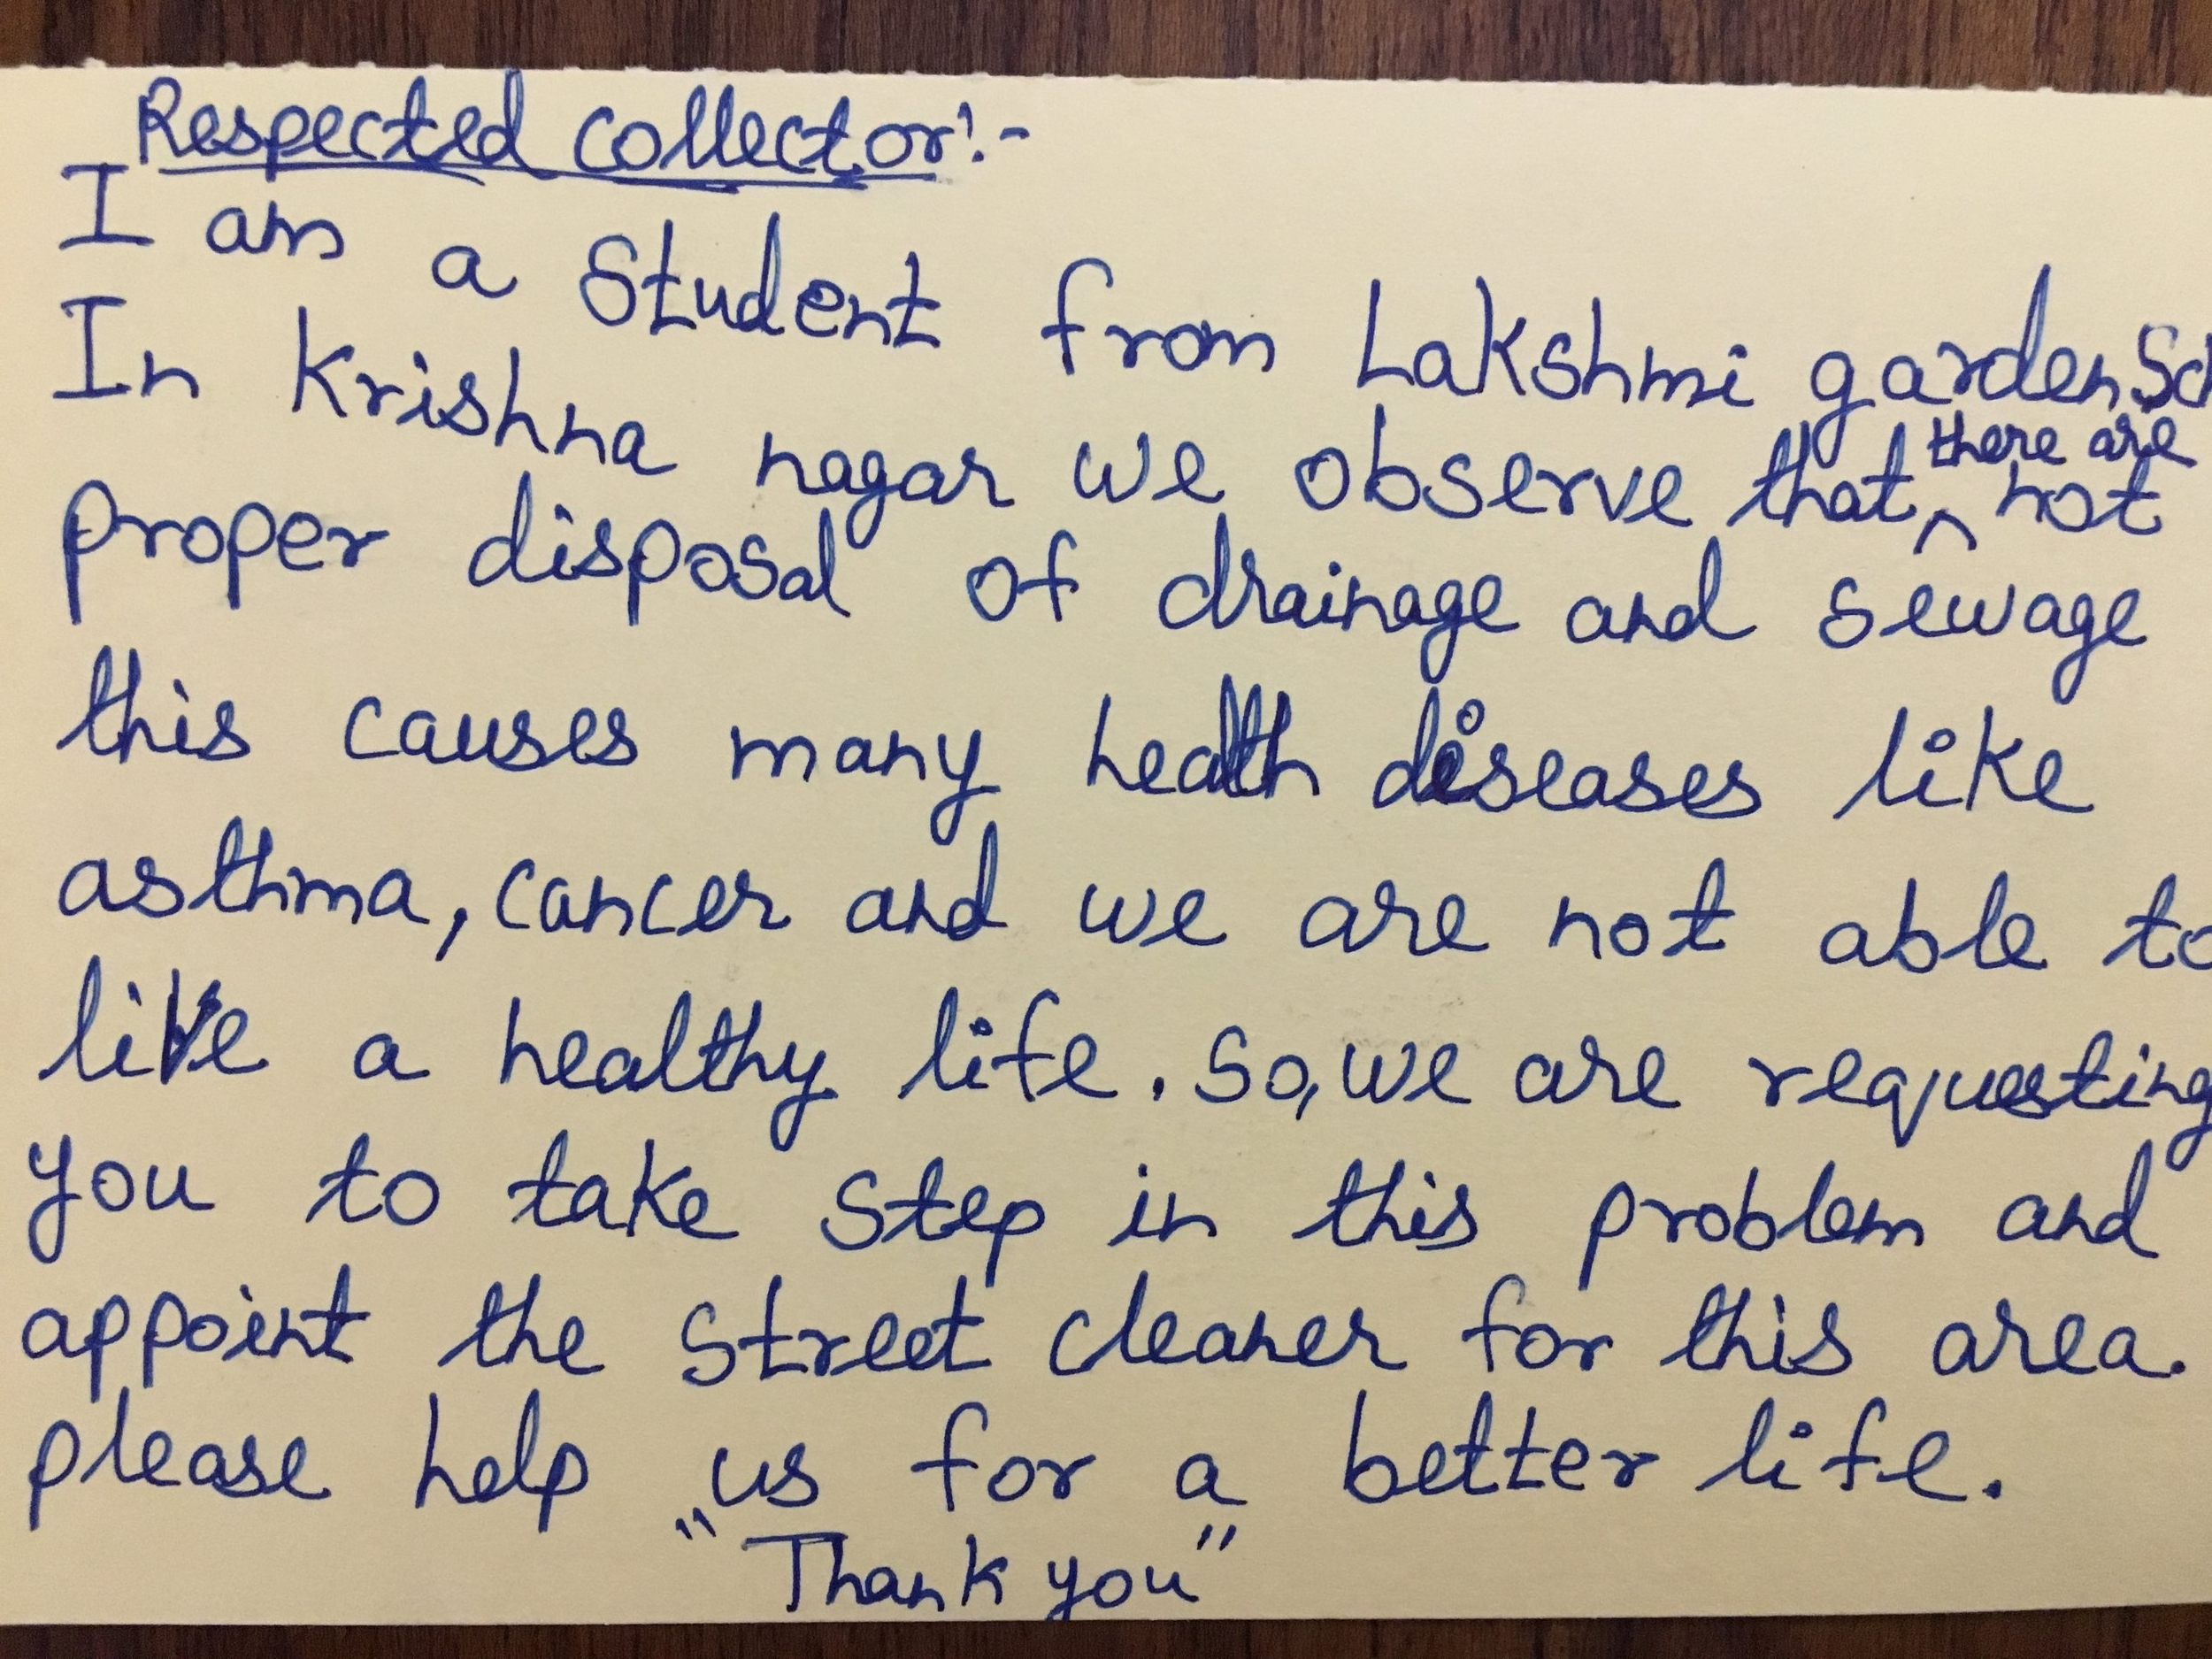 Respected collector:-
I am a Student from Lakshmi garden Sc
In Krishna nagar we observe that there are not
proper disposal of drainage and sewage
this causes many health diseases like
asthma, cancer and we are not able to
live a healthy life. So, we are requesting
you to take step in this problem and
appoint the street cleaner for this area.
please help us for a better life.
"Thank you"